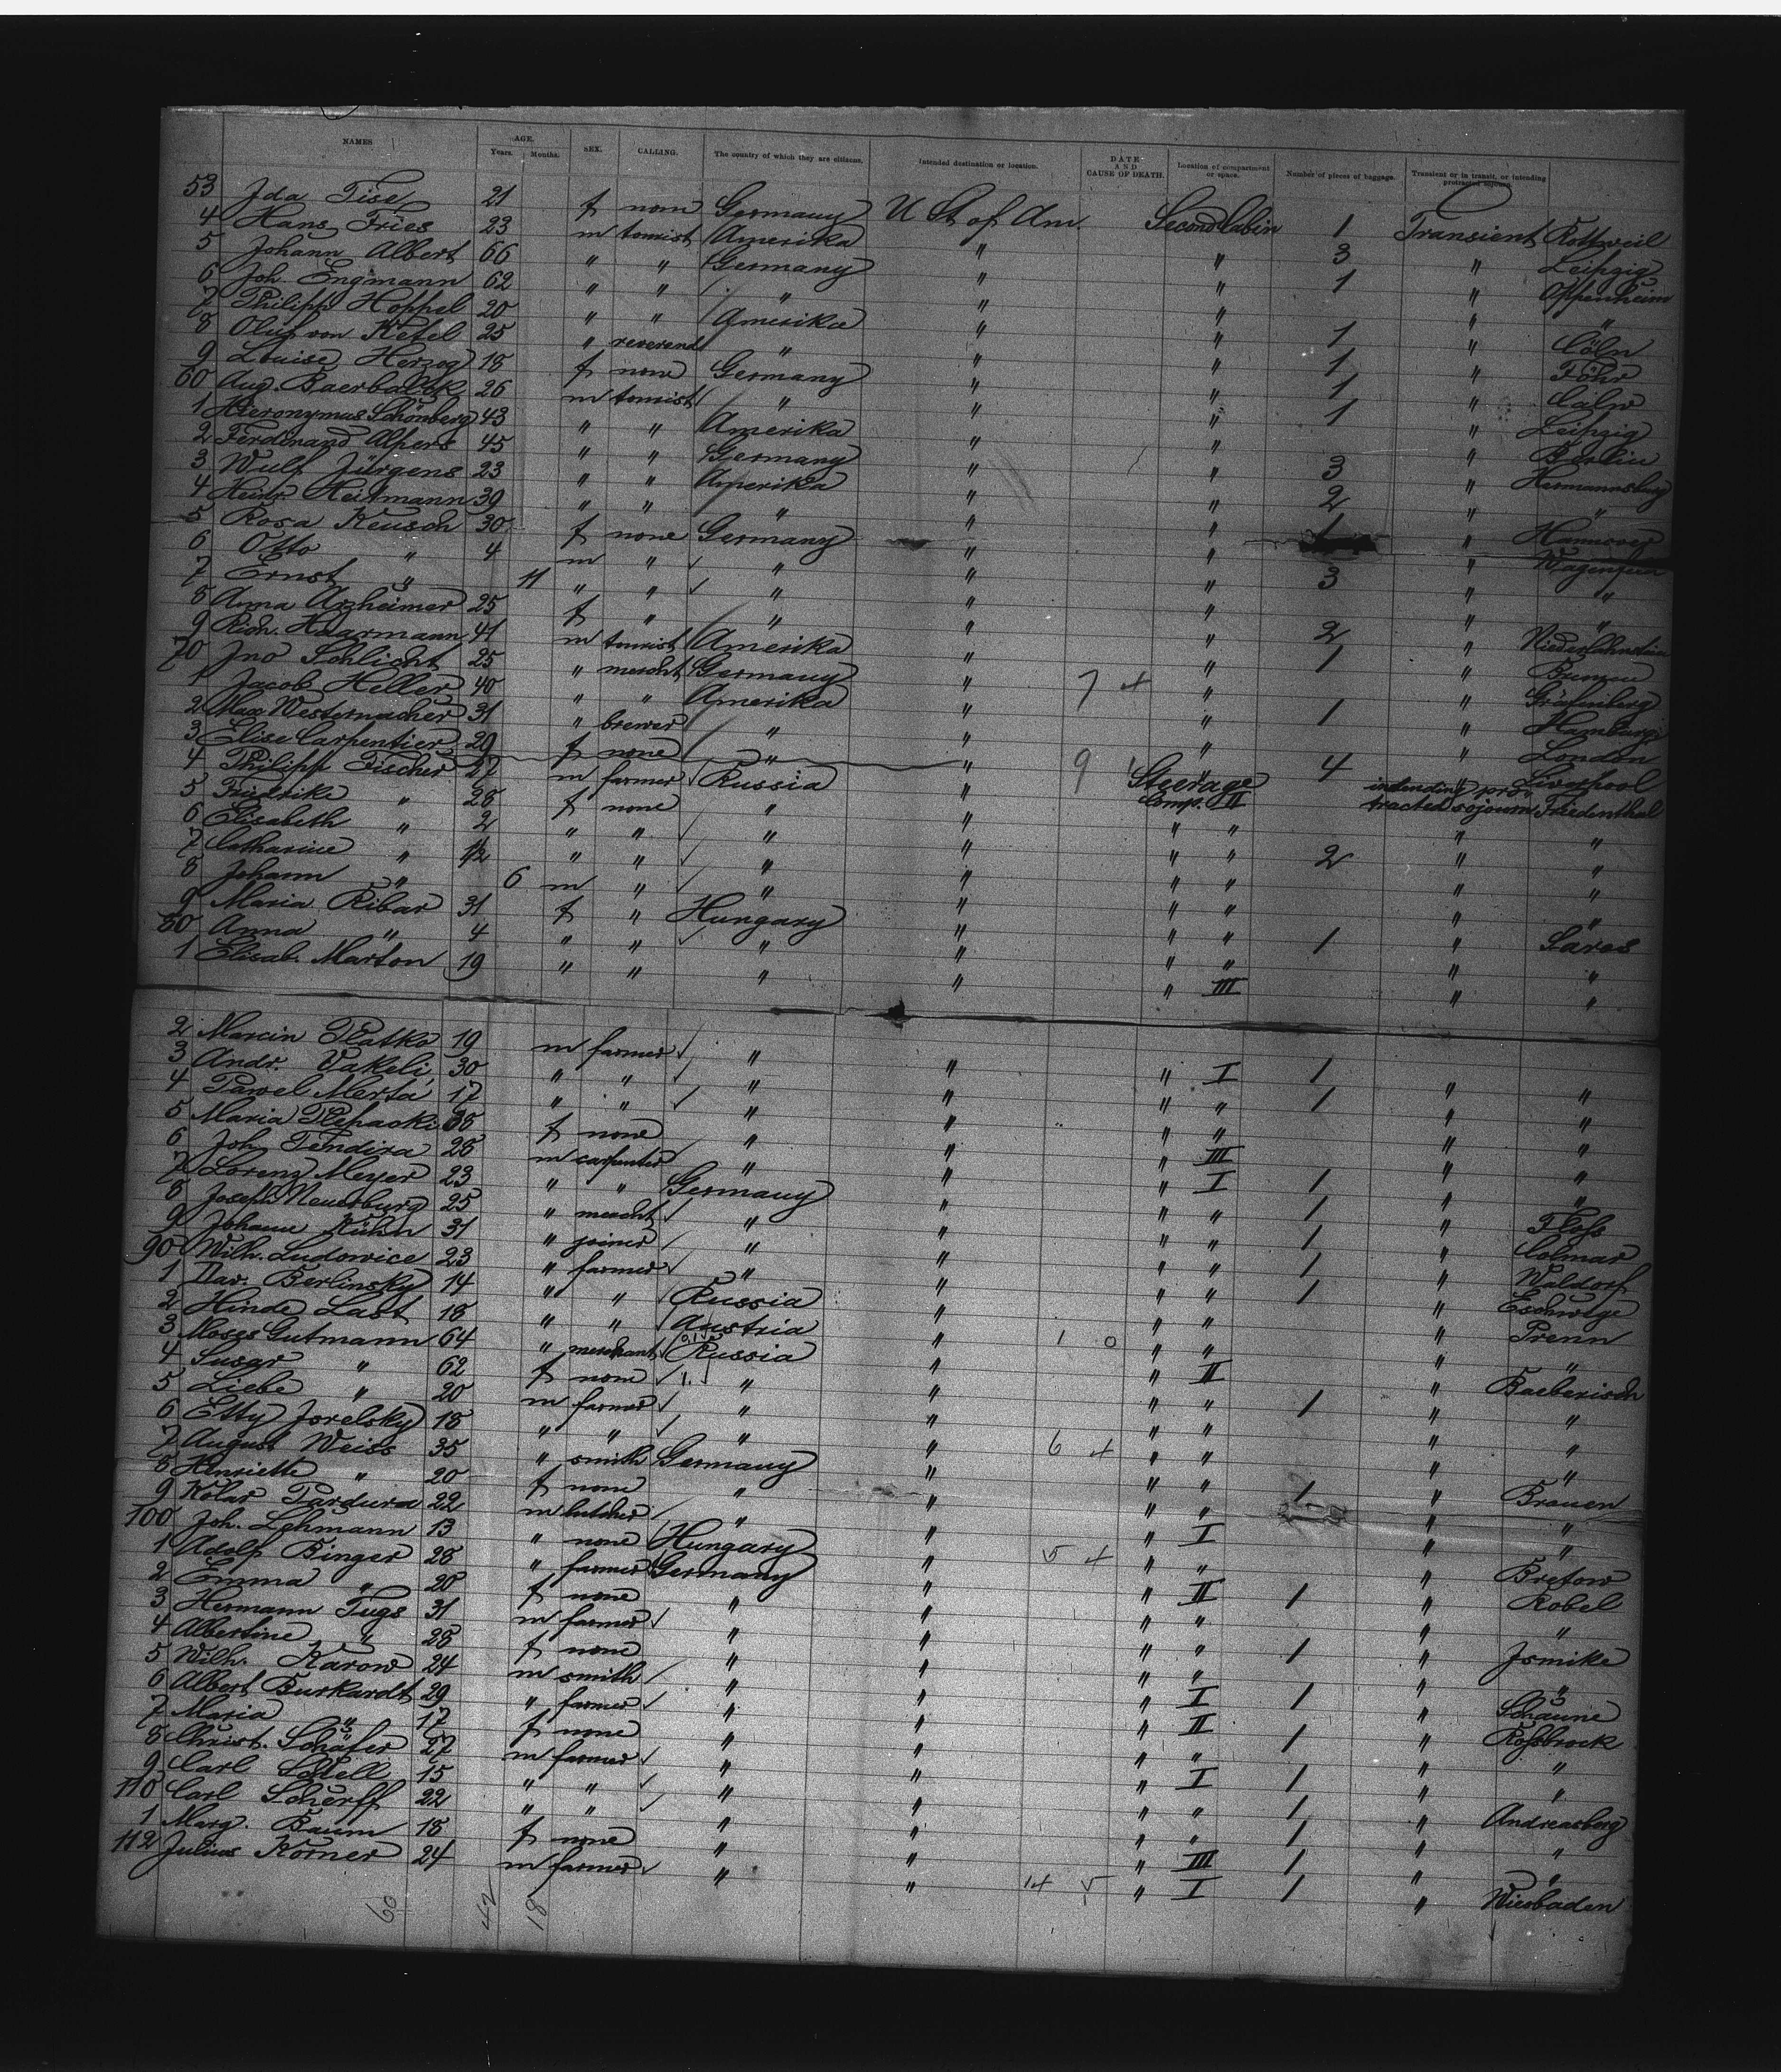 NAMES AGE. Years. Months. SEX. CALLING. The country of which they are citizens. Intended destination or location. DATE AND CAUSE OF DEATH. Location of compartment or space. Number of pieces of baggage. Transient or in transit, or intending protracted sojourn.
53 Ida 21 f none Germany U St of Am. Second Cabin 1 Transient Rottweil
4 Hans Fries 23 m tourist Amerika " " 3 " Leipzig
5 Johann Albert 66 " " Germany " " 1 " Oppenheim
6 Joh. Engmann 62 " " " " " " "
7 Philipp Hoppel 20 " " Amerika " " 1 " Cöln
8 Oluf von Ketel 25 " reverend " " " 1 " Föhr
9 Louise Herzog 18 f none Germany " " 1 " Calw
60 Aug. 26 m tourist " " " 1 " Leipzig
1 Hieronymus Schönberg 43 " " Amerika " " " Berlin
2 Ferdinand Alpers 45 " " Germany " " 3 " Hermannsburg
3 Wulf Jürgens 23 " " Amerika " " 2 " "
4 Heinr. Heitmann 39 " " " " " 1 " Hannover
5 Rosa Keusch 30 f none Germany " " "
6 Otto " 4 m " " " " 3 " "
7 Ernst " 11 " " " " " " "
8 Anna Arzheimer 25 f " " " " 2 " Niederlahnstein
9 Rich. Haarmann 41 m tourist Amerika " " 1 " Bremen
70 Jno Schlicht 25 " mercht Germany " 7 4 " " Gräfenberg
1 Jacob Heller 40 " " Amerika " " 1 " Hamburg
2 Max Westernacher 31 " brewer " " " " London
3 Elise Carpentier 29 f none " " 9 " 4 " Liverpool
4 Philipp Fischer 27 m farmer Russia " Steerage Comp. II intending protracted sojourn Friedenthal
5 Fridrike " 28 f none " " " " " "
6 Elisabeth " 2 " " " " " " 2 " "
7 Catharine " 1/2 " " " " " " " "
8 Johann " 6 m " " " " " " "
9 Maria Ribar 31 f " Hungary " " " 1 " Saros
80 Anna " 4 " " " " " " " "
1 Elisab. Marton 19 " " " " " III " "
2 Marcin Platko 19 m farmer " " " I 1 " "
3 Andr. Vakeli 30 " " " " " " 1 " "
4 Pawel Merta 17 " " " " " " " "
5 Maria 38 f none " " " III " "
6 Joh. Tendira 28 m carpenter " " " I 1 " "
7 Lorenz Meyer 23 " " Germany " " " 1 " Floss
8 Joseph Neuerburg 25 " mercht " " " " 1 " Colmar
9 Johann Kühn 31 " joiner " " " " 1 " Waldorf
90 Wilh. Ludowice 23 " farmer " " " " 1 " Eschwege
1 Dav. Berlinsky 14 " " Russia " " " " Prenn
2 Hinde Last 18 " " Austria " 1 0 " " " "
3 Moses Gutmann 64 " merchant Russia " " II "
4 Susar " 62 f none " " " " 1 " "
5 Liebe " 20 m farmer " " " " " "
6 Etty Jorelsky 18 " " " " 6 4 " " " "
7 August Weiss 35 " smith Germany " " " 1 " Brauen
8 Henriette " 20 f none " " " " " "
9 Kolar Pardura 22 m butcher " " " I " "
100 Joh. Lehmann 13 " none Hungary " 5 4 " " " Bretow
1 Adolf Binger 28 " farmer Germany " " II 1 " Robel
2 Emma " 20 f none " " " " " "
3 Hermann Tugs 31 m farmer " " " " 1 " Jsmike
4 Albertine " 28 f none " " " " " "
5 Wilh. Karow 24 m smith " " " I 1 " Schaune
6 Albert Burkardt 29 " farmer " " " II 1 " Rossbrock
7 Maria " 17 f none " " " " " "
8 Christ. Schäfer 27 m farmer " " " I 1 " "
9 Carl Schell 15 " " " " " " 1 " Andreasberg
110 Carl Scherff 22 " " " " " " 1 " "
1 Marg. Baum 18 f none " " " III 1 " "
112 Julius Körner 24 m farmer " " 14 5 " I 1 " Wiesbaden
60 42 18